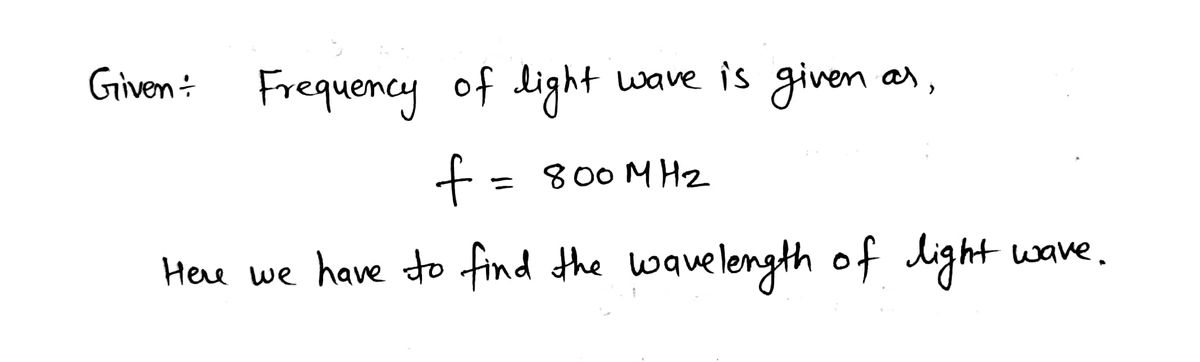 Given: Frequency of light wave is given as,
f = 800 MHz
Here we have to find the wavelength of light wave.